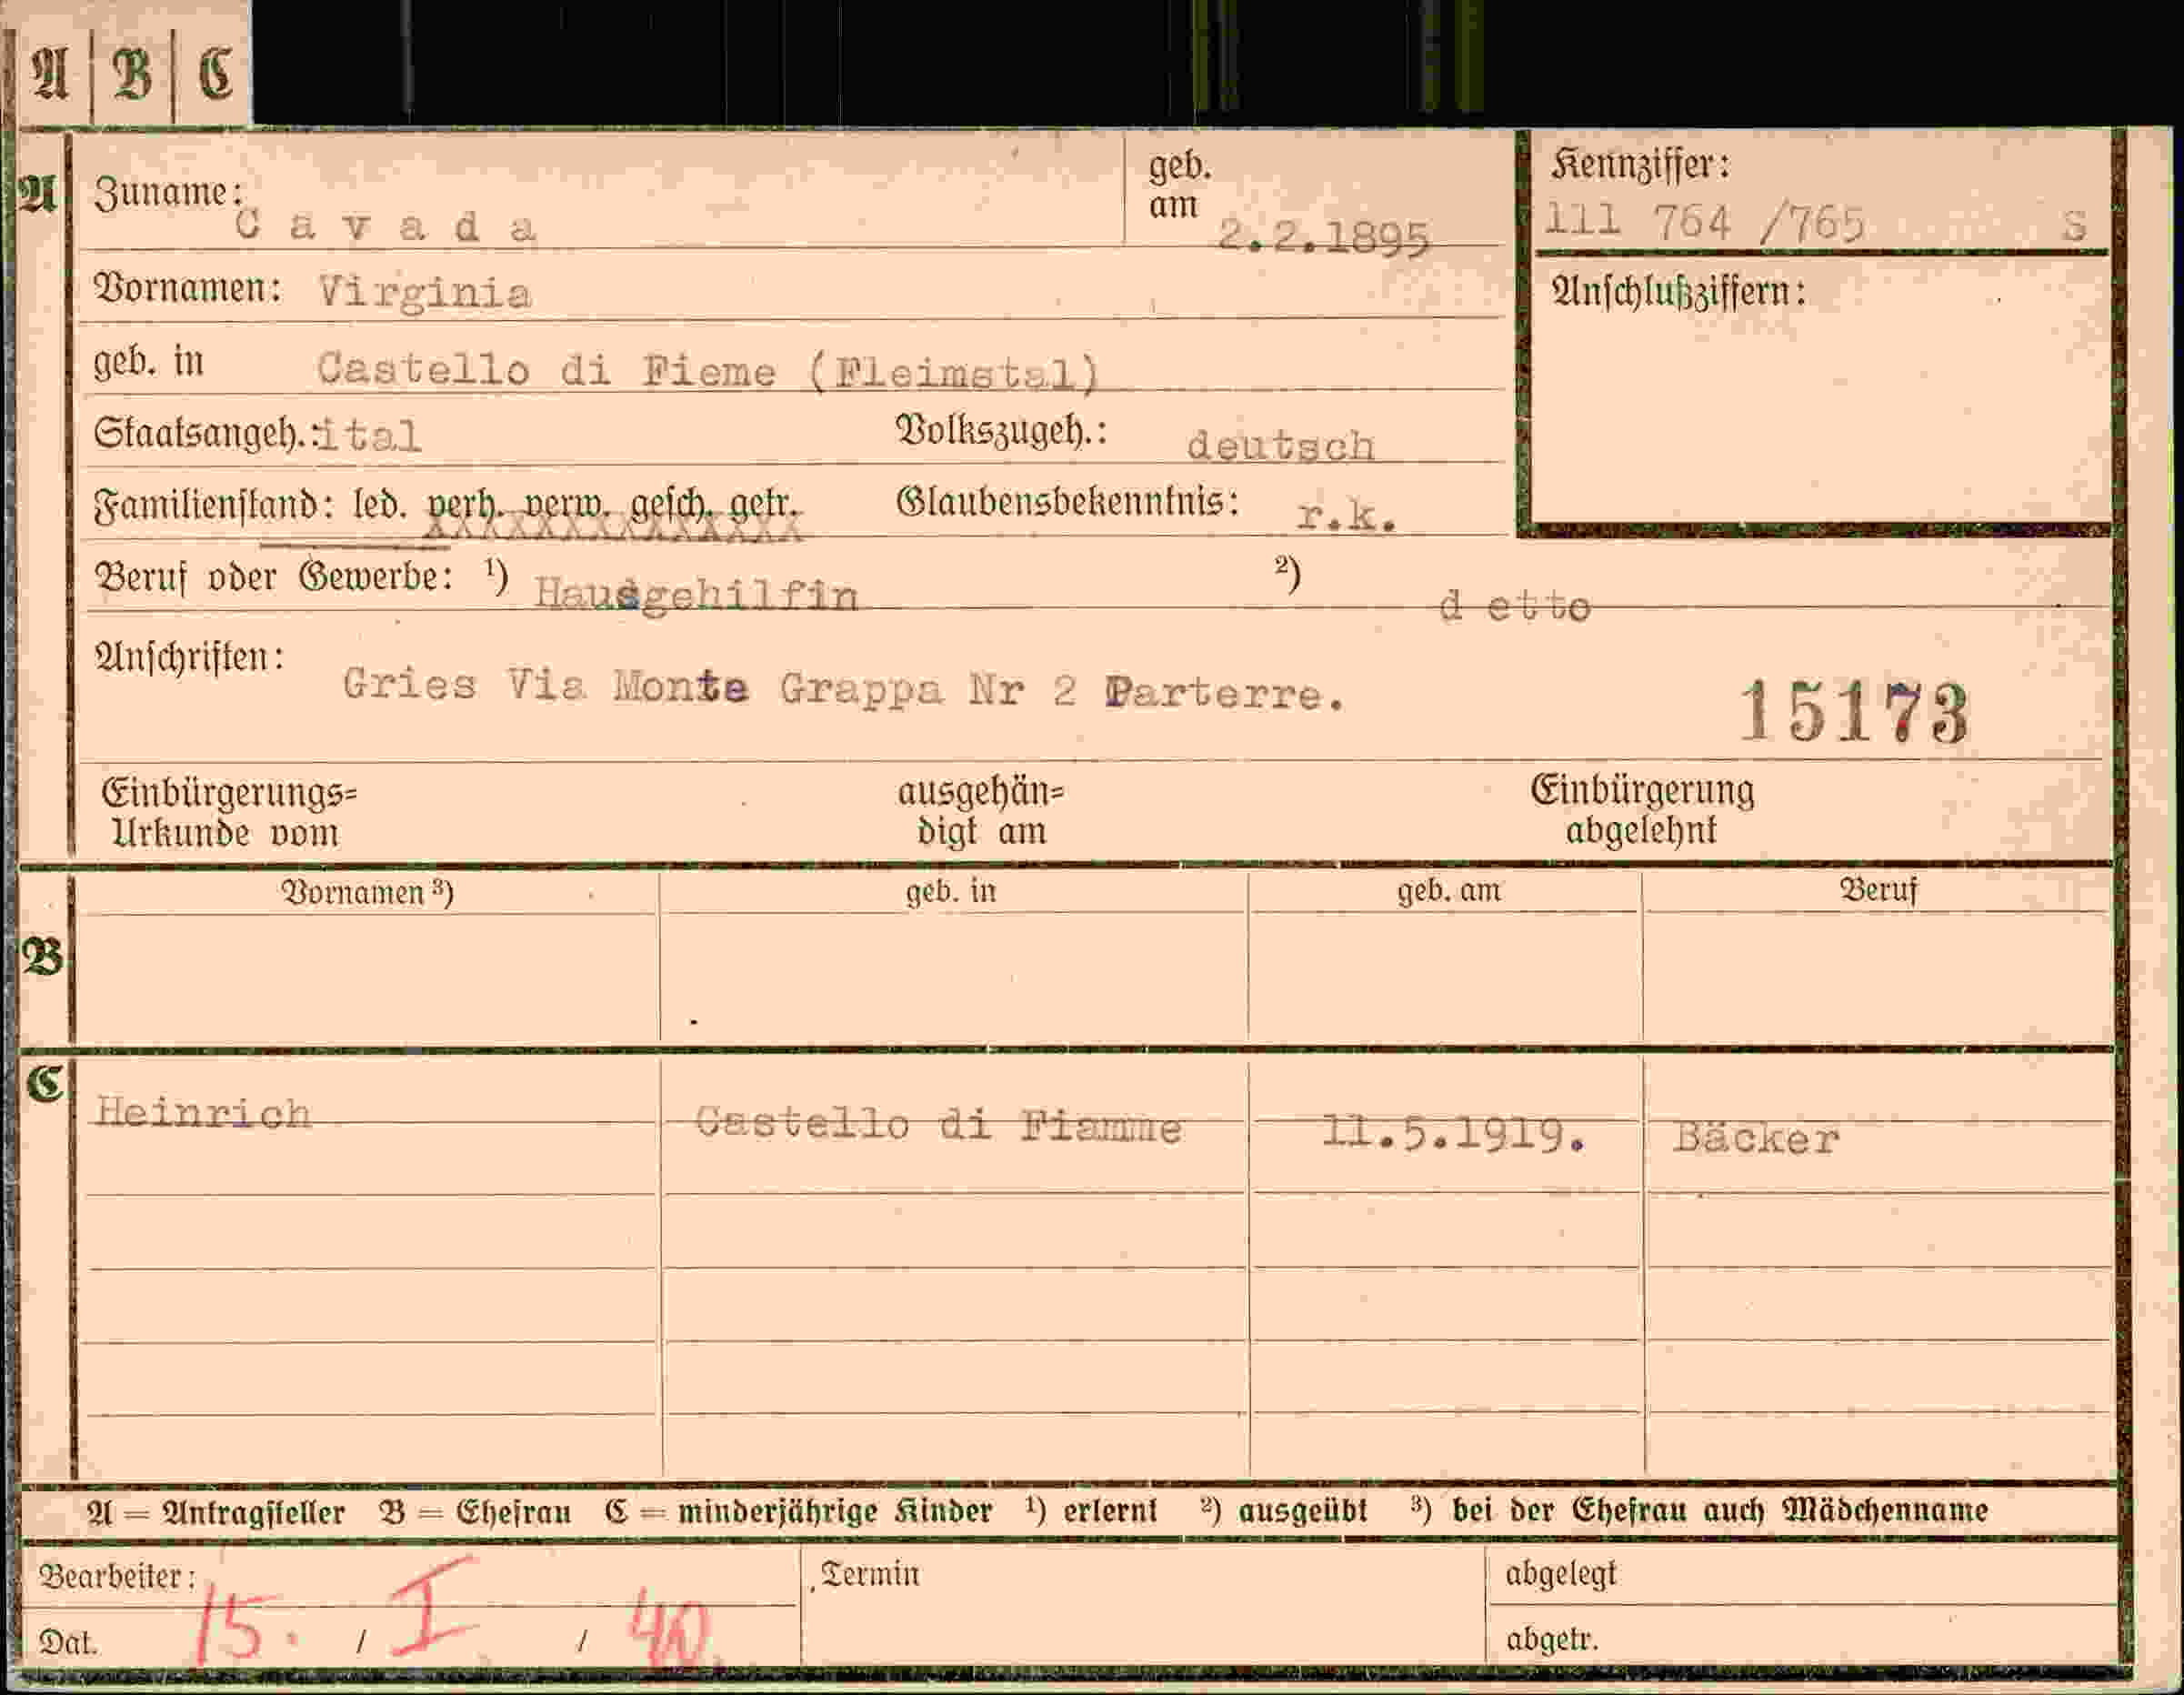 A | B | C
A
Zuname: Cavada
geb. am 2.2.1895
Kennziffer:
111 764 /765 S
Vornamen: Virginia
Anschlußziffern:
geb. in Castello di Fieme (Fleimstal)
Staatsangeh.: ital Volkszugeh.: deutsch
Familienstand: led. verh. verw. gesch. getr. Glaubensbekenntnis: r.k.
Beruf oder Gewerbe: ¹) Hausgehilfin ²) d etto
Anschriften: Gries Via Monte Grappa Nr 2 Parterre.
15173
Einbürgerungs=
Urkunde vom
ausgehän=
digt am
Einbürgerung
abgelehnt
B
Vornamen ³) geb. in geb. am Beruf
C
Heinrich Castello di Fiamme 11.5.1919. Bäcker
A = Antragsteller B = Ehefrau C = minderjährige Kinder ¹) erlernt ²) ausgeübt ³) bei der Ehefrau auch Mädchenname
Bearbeiter: Termin abgelegt
Dat. 15. / I / 40. abgetr.